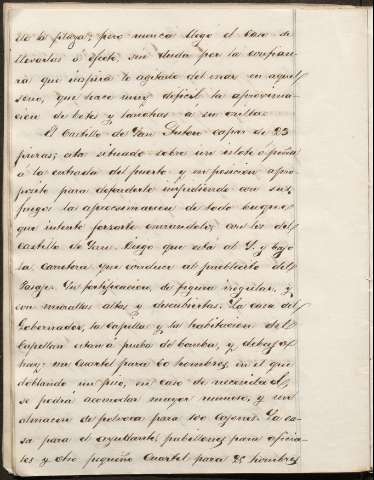 de la plaza; pero nunca llegó el caso de
llevarlas á efecto, sin duda por la confian-
za que inspira lo agitado del mar en aquel
seno, que hace muy dificil la aproxima-
cion de botes y lanchas á su orilla.
El Castillo de San Anton capaz de 23
piezas, esta situado sobre un islote ó peña
á la entrada del puerto y en posicion apro-
posito para defenderlo impidiendo con sus
fuegos la aprocsimacion de todo buque
que intente forzarlo cruzandolos con los del
castillo de San Diego que está al S. y bajo
la carretera que conduce al pueblecito del
Pasaje. Su fortificacion, de figura irregular, y
con murallas altas y descubiertas. La casa del
Gobernador, la Capilla y la habitacion del
Capellan estan á prueba de bomba, y debajo
hay un Cuartel para 60 hombres, en el que
doblando un piso, en caso de necesidad,
se podrá acomodar mayor numero, y un
almacen de polvora para 100 cajones. La ca-
sa para el ayudante, pabellones para oficia-
les y otro pequeño Cuartel para 25 hombres